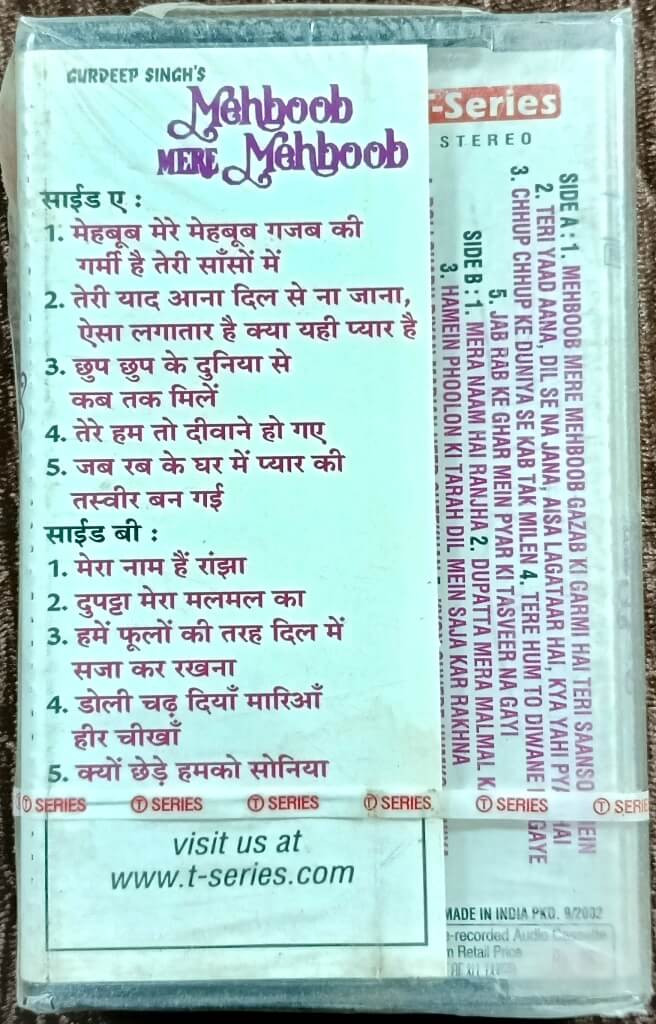 GURDEEP SINGH'S
Mehboob
MERE Mehboob
साईड ए :
1. मेहबूब मेरे मेहबूब गजब की
गर्मी है तेरी साँसों में
2. तेरी याद आना दिल से ना जाना,
ऐसा लगातार है क्या यही प्यार है
3. छुप छुप के दुनिया से
कब तक मिलें
4. तेरे हम तो दीवाने हो गए
5. जब रब के घर में प्यार की
तस्वीर बन गई
साईड बी :
1. मेरा नाम हैं रांझा
2. दुपट्टा मेरा मलमल का
3. हमें फूलों की तरह दिल में
सजा कर रखना
4. डोली चढ़ दियाँ मारिआँ
हीर चीखाँ
5. क्यों छेड़े हमको सोनिया
T SERIES T SERIES T SERIES T SERIES T SERIES T SERIE
visit us at
www.t-series.com
T-Series
STEREO
SIDE A : 1. MEHBOOB MERE MEHBOOB GAZAB KI GARMI HAI TERI SAANSO MEIN
2. TERI YAAD AANA, DIL SE NA JANA, AISA LAGATAAR HAI, KYA YAHI PYA HAI
3. CHHUP CHHUP KE DUNIYA SE KAB TAK MILEN 4. TERE HUM TO DIWANE GAYE
5. JAB RAB KE GHAR MEIN PYAR KI TASVEER NA GAYI
SIDE B : 1. MERA NAAM HAI RANJHA 2. DUPATTA MERA MALMAL K
3. HAMEIN PHOOLON KI TARAH DIL MEIN SAJA KAR RAKHNA
MADE IN INDIA PKD. 9/2002
-recorded Audio Cassette
Retail Price